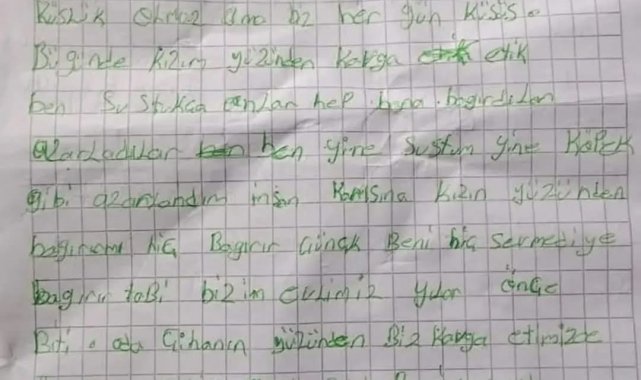 Küslük Olmaz Ama biz her gün Küsüs.
Bi günde kizim yüzünden Kavga etik
ben Su Stukca onlar hep bana bagirdilar
azarladılar ben yine Sustum yine KöPeK
gibi azarlandım insan Karisina kizin yüzünden
bagirirmi hiç Bagirir Günak Beni hiç Sevmediye
bagirir tabi bizim evlimiz yılar önce
Biti. oda Cihanin yüzünden Biz Kavga etimizde